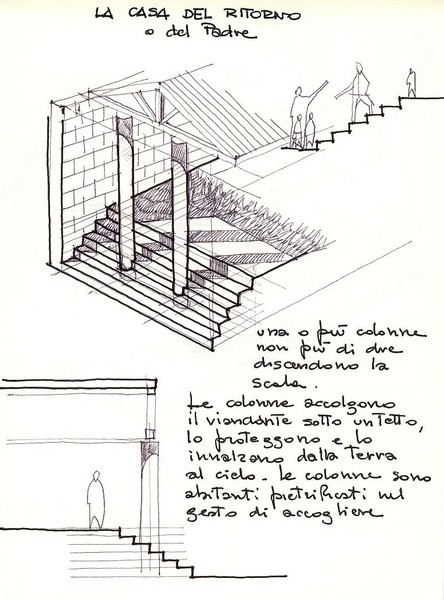 LA CASA DEL RITORNO
o del Padre
una o più colonne
non più di due
discendono la
scala.
Le colonne accolgono
il viandante sotto un Tetto,
lo proteggono e lo
innalzano dalla Terra
al cielo. le colonne sono
abitanti pietrificati nel
gesto di accogliere